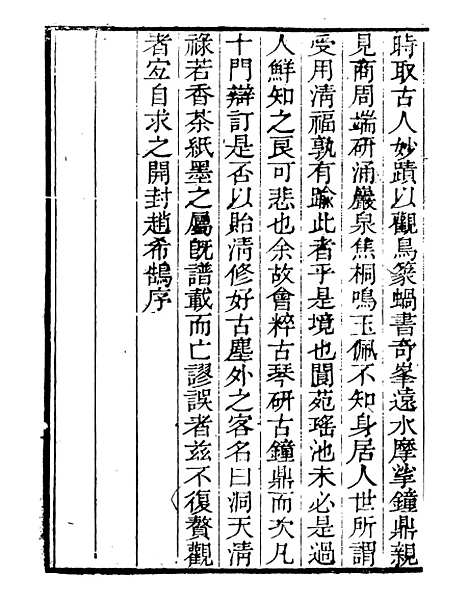 時取古人妙蹟以觀鳥篆蝸書奇峯遠水摩挲鐘鼎親
見商周端研涌巖泉焦桐鳴玉佩不知身居人世所謂
受用清福孰有踰此者乎是境也閬苑瑤池未必是過
人鮮知之良可悲也余故會粹古琴研古鐘鼎而次凡
十門辯訂是否以貽清修好古塵外之客名曰洞天清
祿若香茶紙墨之屬旣譜載而亡謬誤者兹不復贅觀
者宐自求之開封趙希鵠序